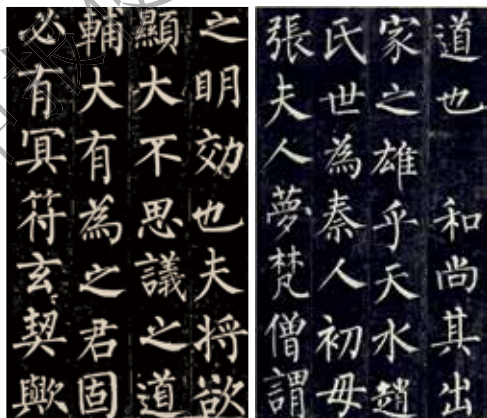 道也 和尚其出
家之雄乎天水趙
氏世為秦人初母
張夫人夢梵僧謂
之明効也夫將欲
顯大不思議之道
輔大有為之君固
必有冥符玄契歟